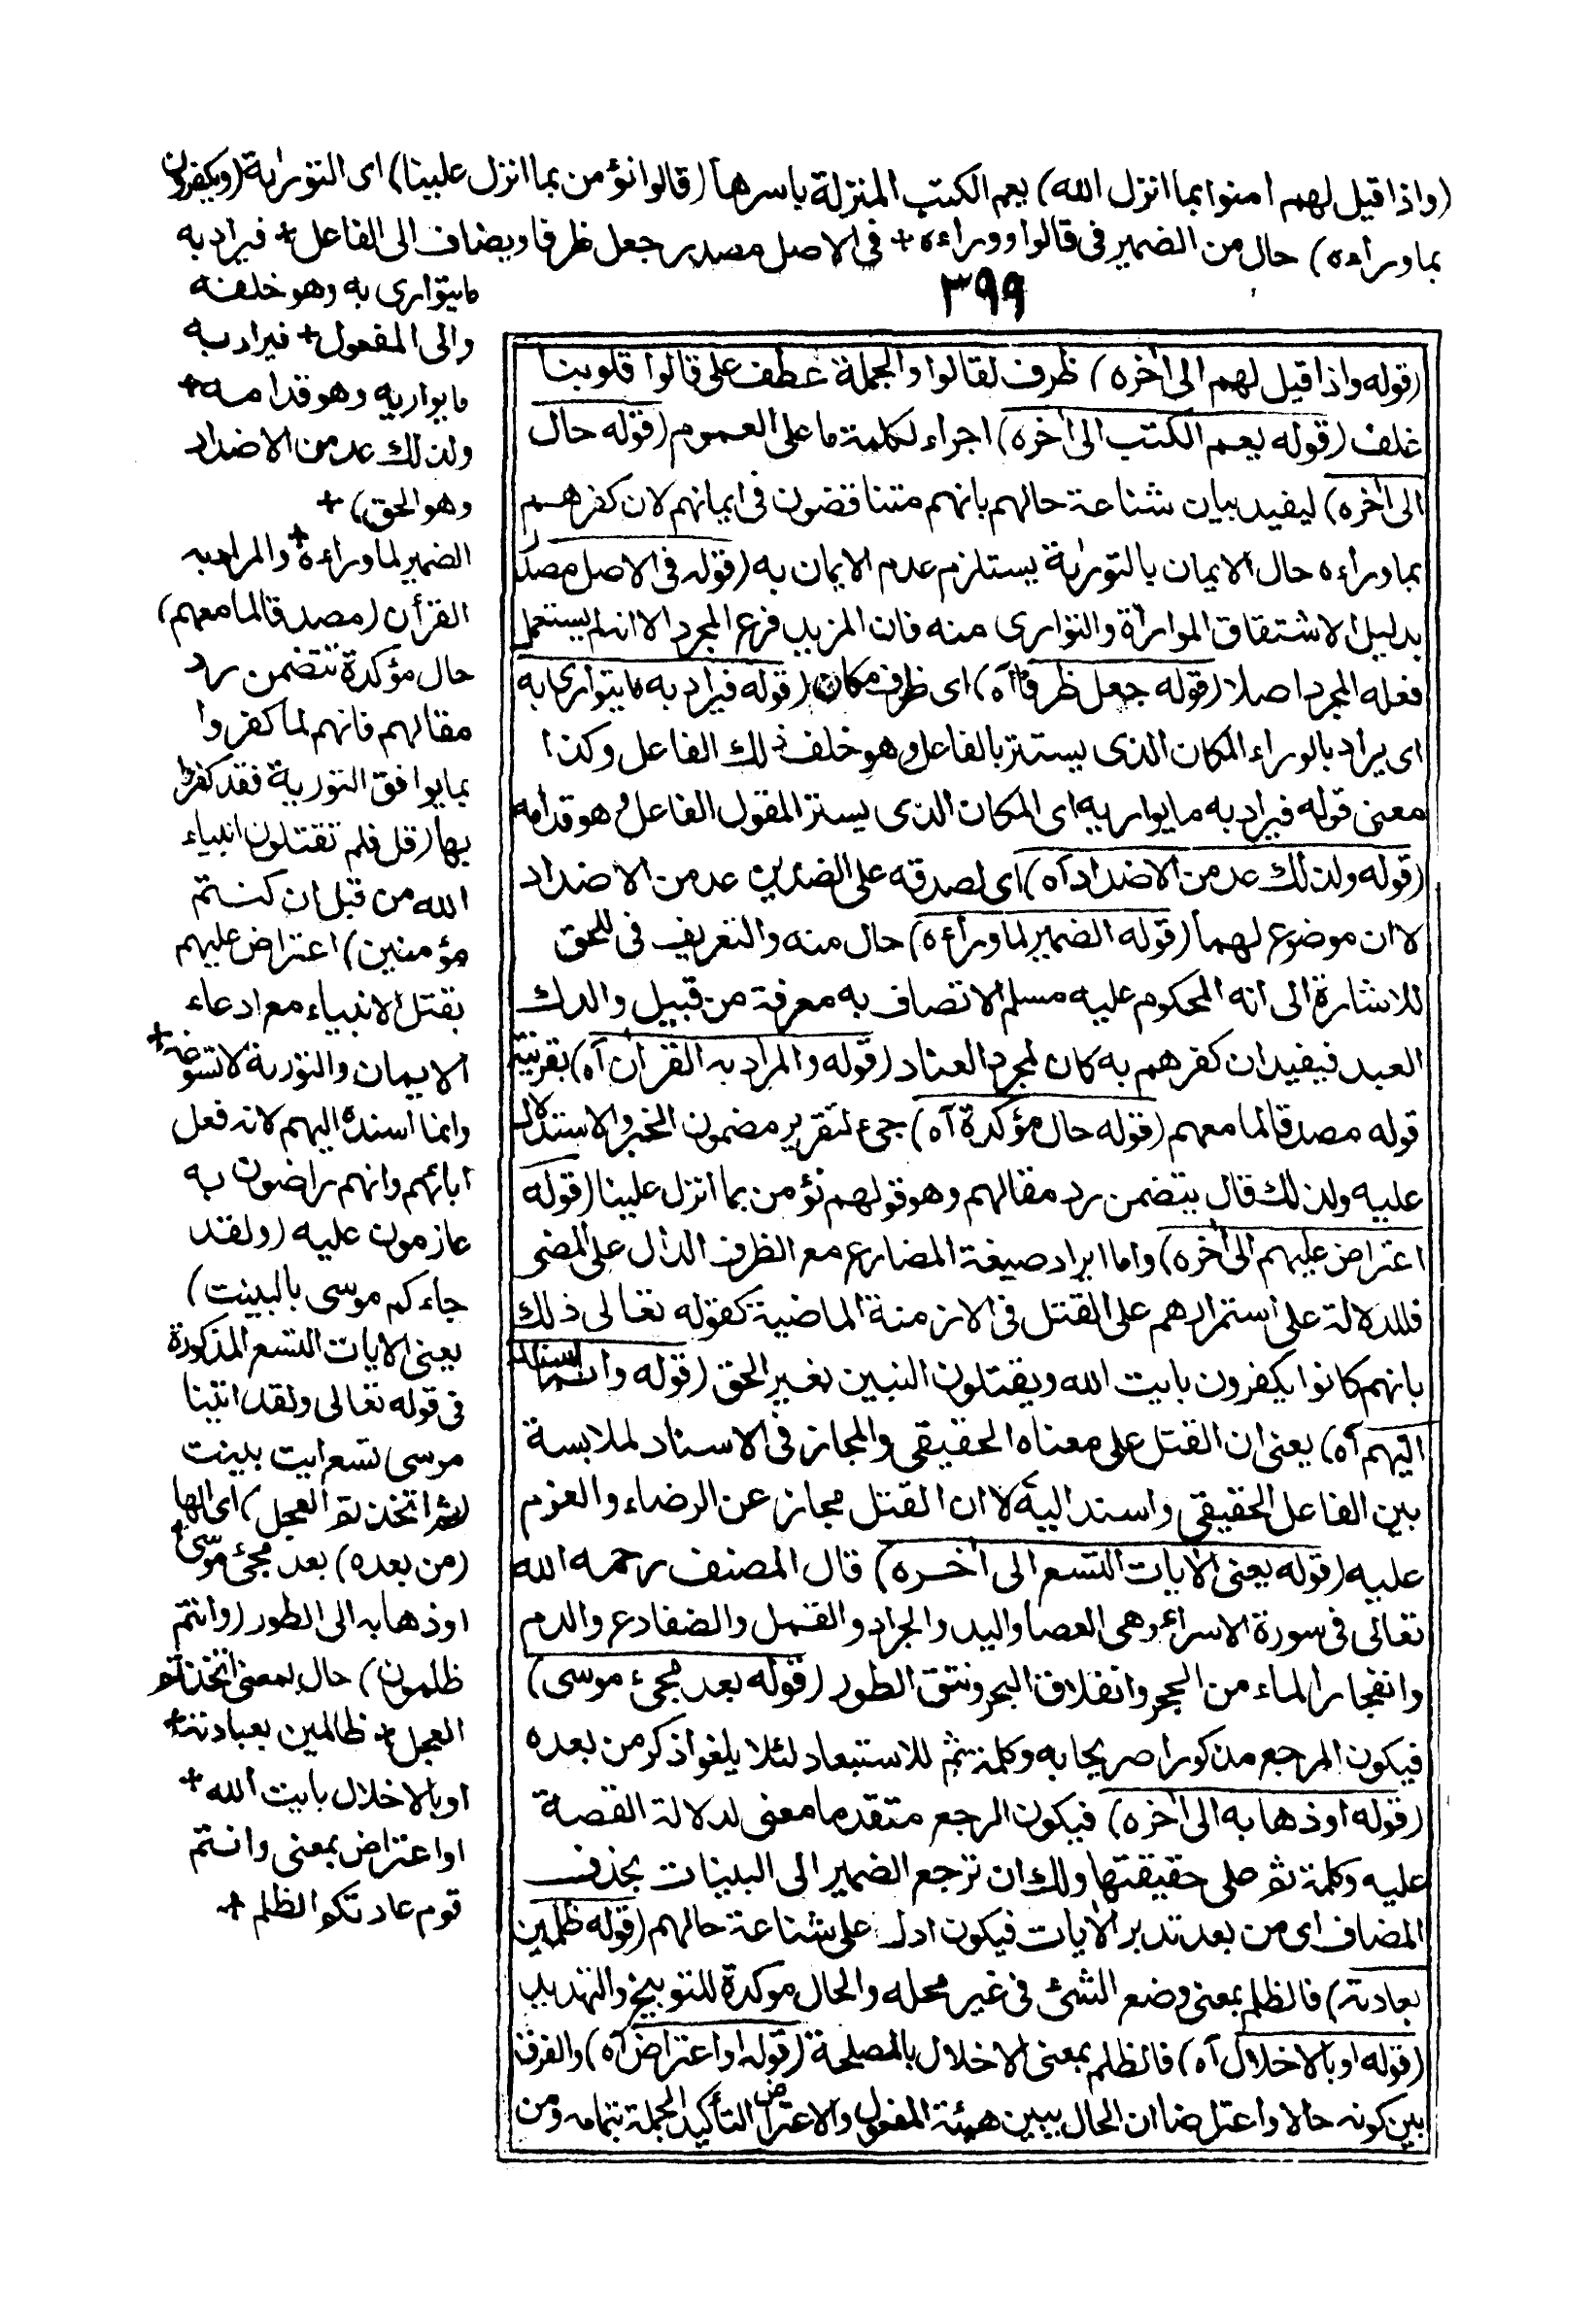 (واذا قيل لهم امنوا بما انزل الله) يعم الكتب المنزلة باسرها (قالوا نؤمن بما انزل علينا) اى التورٰىة (ويكفرون
بما وراءه) حال من الضمير فى قالوا ووراءه + فى الاصل مصدر جعل ظرفا ويضاف الى الفاعل + فيراد به
ما يتوارى به وهو خلفه
والى المفعول + فيراد به
ما يواريه وهو قدامه +
ولذلك عد من الاضداد
وهو الحق) +
الضمير لما وراءه + والمراد به
القرأن (مصدقا لما معهم)
حال مؤكدة تتضمن رد
مقالهم فانهم لما كفروا
بما يوافق التورية فقد كفروا
بها (قل فلم تقتلون انبياء
الله من قبل ان كنتم
مؤمنين) اعتراض عليهم
بقتل الانبياء مع ادعاء
الايمان والتورية لا تسوغه +
وانما اسنده اليهم لانه فعل
ابائهم وانهم راضون به
عازمون عليه (ولقد
جاءكم موسى بالبينت)
يعنى الايات التسع المذكورة
فى قوله تعالى ولقد اتينا
موسى تسع ايت بينت
(ثم اتخذتم العجل) اى الها
(من بعده) بعد مجئ موسى +
او ذهابه الى الطور (وانتم
ظلمون) حال بمعنى اتخذتم
العجل + ظالمين بعبادته +
او بالاخلال بايت الله +
او اعتراض بمعنى وانتم
قوم عادتكم الظلم +
٣٩٩
(قوله واذا قيل لهم الى اٰخره) ظرف لقالوا والجملة عطف على قالوا قلوبنا
غلف (قوله يعم الكتب الى اٰخره) اجراء لكلمة ما على العموم (قوله حال
الى اٰخره) ليفيد بيان شناعة حالهم بانهم متناقضون فى ايمانهم لان كفرهم
بما وراءه حال الايمان بالتورٰىة يستلزم عدم الايمان به (قوله فى الاصل مصدر
بدليل الاشتقاق المواراة والتوارى منه فان المزيد فرع المجرد الا انه لم يستعمل
فعله المجرد اصلا (قوله جعل ظرفا آه) اى ظرف مكان (قوله فيراد به ما يتوارى به
اى يراد بالوراء المكان الذى يستتر بالفاعل وهو خلف ذلك الفاعل وكذا
معنى قوله فيراد به ما يواريه اى المكان الذى يستر المقول الفاعل وهو قدامه
(قوله ولذلك عد من الاضداد آه) اى لصدقه على الضدين عد من الاضداد
لا ان موضوع لهما (قوله الضمير لما وراءه) حال منه والتعريف فى للحق
للاشارة الى انه المحكوم عليه مسلم الاتصاف به معرفة من قبيل والدك
العبد فيفيد ان كفرهم به كان لمجرد العناد (قوله والمراد به القرأن آه) بقرينة
قوله مصدقا لما معهم (قوله حال مؤكدة آه) جئ لتقرير مضمون الخبر والاستدلال
عليه ولذلك قال يتضمن رد مقالهم وهو قولهم نؤمن بما انزل علينا (قوله
اعتراض عليهم الى اٰخره) واما ايراد صيغة المضارع مع الظرف الدال على المضى
فللدلالة على استمرارهم على القتل فى الازمنة الماضية كقوله تعالى ذلك
بانهم كانوا يكفرون بايت الله ويقتلون النبين بغير الحق (قوله وانما اسنده
اليهم آه) يعنى ان القتل على معناه الحقيقى والمجاز فى الاسناد لملابسة
بين الفاعل الحقيقى واسند اليه لا ان القتل مجاز عن الرضاء والعزم
عليه (قوله يعنى الايات التسع الى اٰخره) قال المصنف رحمه الله
تعالى فى سورة الاسراء وهى العصا واليد والجراد والقمل والضفادع والدم
وانفجار الماء من الحجر وانفلاق البحر ونتق الطور (قوله بعد مجئ موسى)
فيكون المرجع مذكورا صريحا به وكلمة ثم للاستبعاد لئلا يلغو اذكر من بعده
(قوله او ذهابه الى اٰخره) فيكون المرجع متقدما معنى لدلالة القصة
عليه وكلمة ثم على حقيقتها ولك ان ترجع الضمير الى البينات بحذف
المضاف اى من بعد تدبر الايات فيكون ادل على شناعة حالهم (قوله ظلمين
بعادته) فالظلم بمعنى وضع الشئ فى غير محله والحال موكدة للتوبيخ والتهديد
(قوله او بالاخلال آه) فالظلم بمعنى الاخلال بالمصلحة (قوله او اعتراض آه) والفرق
بين كونه حالا واعتراضا ان الحال يبين هيئة المفعول والاعتراض التأكيد الجملة بتمامه ومن